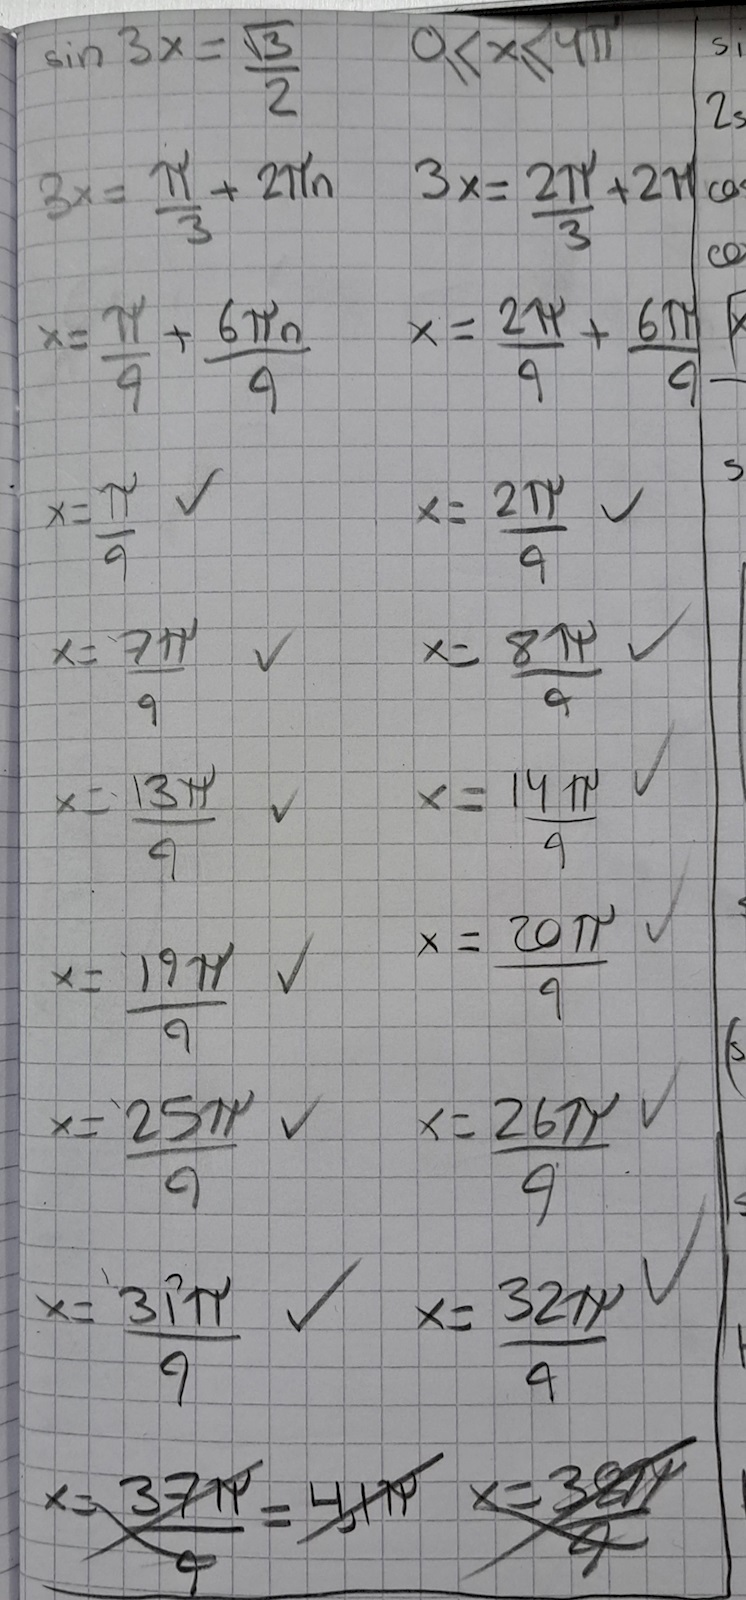 sin 3x = √3/2 0 ≤ x ≤ 4π
3x = π/3 + 2πn 3x = 2π/3 + 2π
x = π/9 + 6πn/9 x = 2π/9 + 6π/9
x = π/9 ✓ x = 2π/9 ✓
x = 7π/9 ✓ x = 8π/9 ✓
x = 13π/9 ✓ x = 14π/9 ✓
x = 19π/9 ✓ x = 20π/9 ✓
x = 25π/9 ✓ x = 26π/9 ✓
x = 31π/9 ✓ x = 32π/9 ✓
x = 37π/9 = 4,1π x = 38π/9